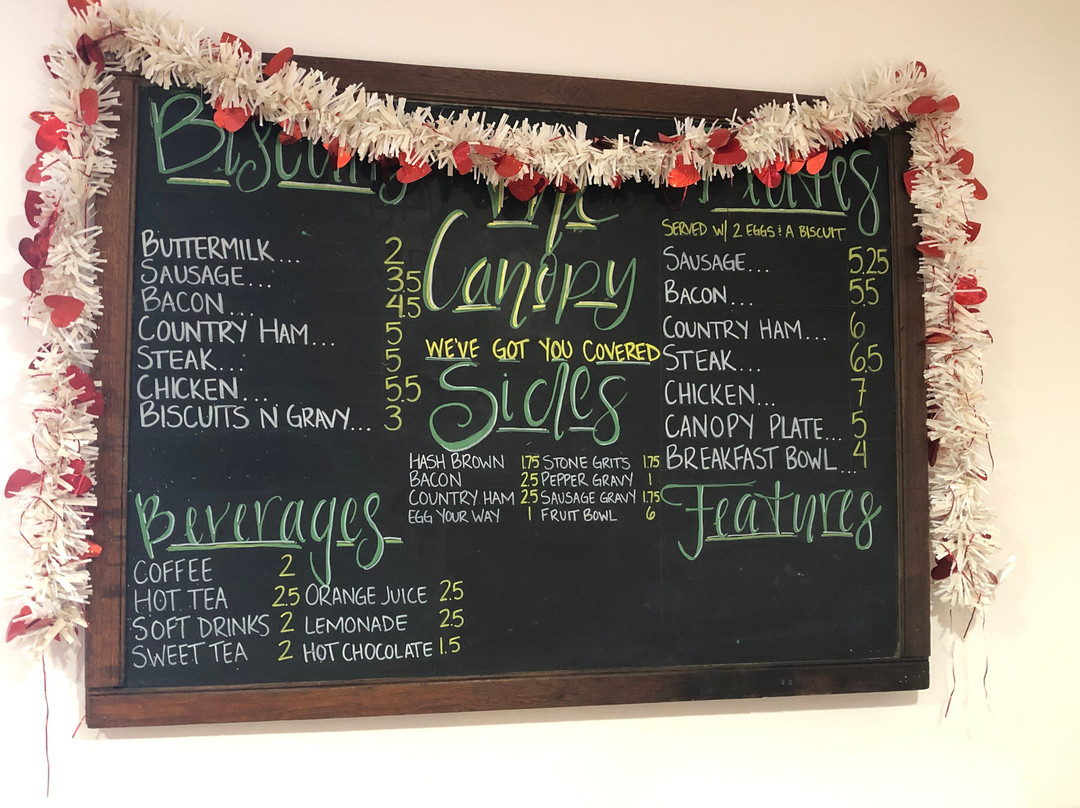 Biscuits
BUTTERMILK... 2
SAUSAGE... 3.5
BACON... 4.5
COUNTRY HAM... 5
STEAK... 5
CHICKEN... 5.5
BISCUITS N' GRAVY... 3
Beverages
COFFEE 2
HOT TEA 2.5 ORANGE JUICE 2.5
SOFT DRINKS 2 LEMONADE 2.5
SWEET TEA 2 HOT CHOCOLATE 1.5
The
Canopy
WE'VE GOT YOU COVERED
Sides
HASH BROWN 1.75 STONE GRITS 1.75
BACON 2.5 PEPPER GRAVY 1
COUNTRY HAM 2.5 SAUSAGE GRAVY 1.75
EGG YOUR WAY 1 FRUIT BOWL 6
Plates
SERVED W/ 2 EGGS & A BISCUIT
SAUSAGE... 5.25
BACON... 5.5
COUNTRY HAM... 6
STEAK... 6.5
CHICKEN... 7
CANOPY PLATE... 5
BREAKFAST BOWL... 4
Features